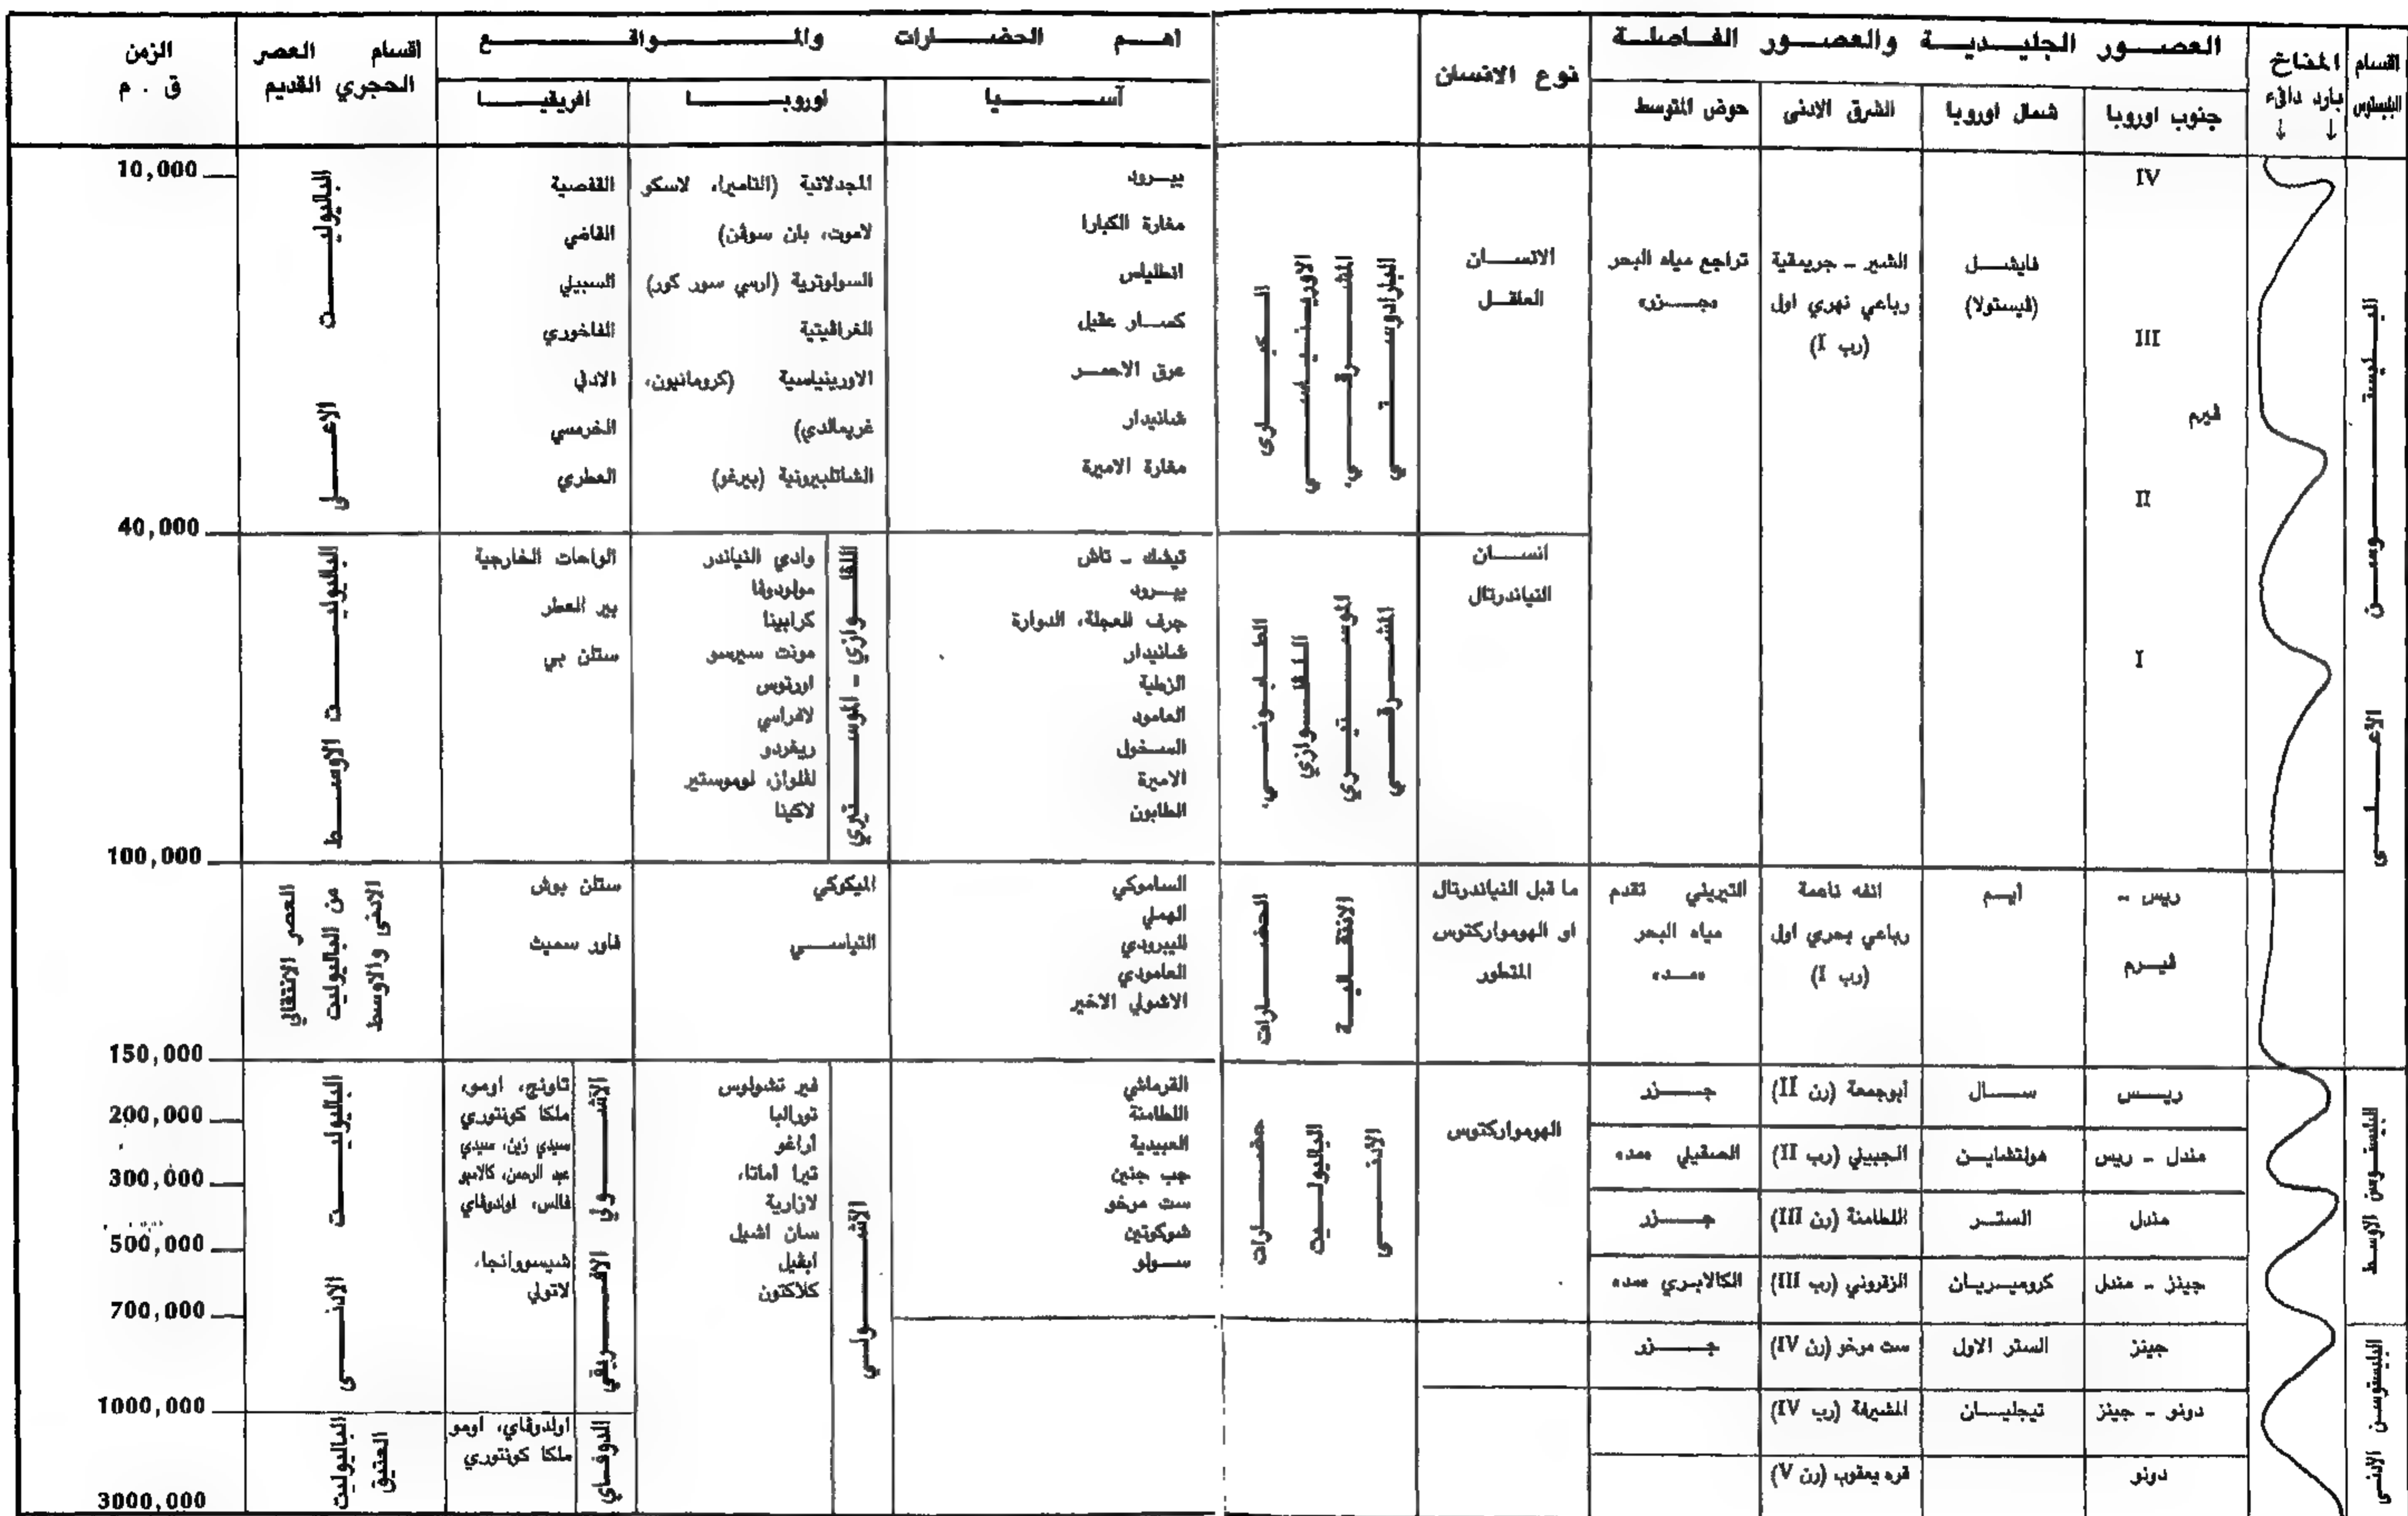 اقسام البليستوس
المناخ
بارد دافىء
العصور الجليدية والعصور الفاصلة
جنوب اوروبا
شمال اوروبا
الشرق الادنى
حوض المتوسط
نوع الانسان
اهم الحضارات والمواقع
آسيا
اوروبا
افريقيا
اقسام العصر
الحجري القديم
الزمن
ق . م
البليستوسن الاعلى
IV
III
فيرم
II
I
فايشل
(فيستولا)
الشير - جريمقية
رباعي نهري اول
(رب I)
تراجع مياه البحر
«جزر»
الانسان
العاقل
البارادوستي
المشرقي،
الاورينياسي
الكباري
يبرود
مغارة الكبارا
انطلياس
كسار عقيل
عرق الاحمر
شانيدار
مغارة الاميرة
المجدلانية (التاميرا، لاسكو
لاموت، بان سوفن)
السولوترية (ارسي سور كور)
الغرافيتية
الاورينياسية (كرومانيون،
غريمالدي)
الشاتلبيرونية (بيرغو)
القفصية
القاضي
السبيلي
الفاخوري
الادلي
الخرمسي
العطري
الباليوليت الاعلى
10,000
40,000
انسان
النياندرتال
المشرقي
الموستيري
اللفلوازي
الطابوني،
تيشك - تاش
يبرود
جرف العجلة، الدوارة
شانيدار
الزطية
العامود
السخول
الاميرة
الطابون
اللفلوازي - الموستيري
وادي النياندر
مولودوفا
كرابينا
مونت سيرسو
اورتوس
لافراسي
ريغردو
لفلوان، لوموستير
لاكينا
الواحات الخارجية
بير العطر
ستلن بي
الباليوليت الاوسط
100,000
ريس -
فيرم
ايم
انفه ناعمة
رباعي بحري اول
(رب I)
التيريني تقدم
مياه البحر
«مد»
ما قبل النياندرتال
او الهومواركتوس
المتطور
الحضارات
الانتقالية
الساموكي
الهملي
اليبرودي
العامودي
الاشولي الاخير
الميكوكي
التياسي
ستلن بوش
فاور سميث
العصر الانتقالي
من الباليوليت
الادنى والاوسط
150,000
البليستوسن الاوسط
ريس
سال
ابوجمعة (رن II)
جزر
مندل - ريس
هولتشاين
الجبيني (رب II)
الصقيلي «مد»
مندل
الستر
اللطامنة (رن III)
جزر
جينز - مندل
كروميريان
الزقروني (رب III)
الكالابري «مد»
الهومواركتوس
حضارات
الباليوليت
الادنى
القرماشي
اللطامنة
العبيدية
جب جنين
ست مرخو
شوكوتين
سولو
الاشولي
فير تشولوس
تورالبا
اراغو
تيرا اماتا،
لازارية
سان اشيل
ابفيل
كلاكتون
الاشولي الافريقي
تاونج، اومو،
ملكا كونتوري
سيدي زين، سيدي
عبد الرحمن، كالامبو
فالس، اولدوفاي
شيسووانجا،
لاتولي
الباليوليت الادنى
200,000
300,000
500,000
700,000
البليستوسن الادنى
جينز
الستر الاول
ست مرخو (رن IV)
جزر
دونو - جينز
تيجليسان
المشيرفة (رب IV)
دونو
قره يعقوب (رن V)
الدوفاي
اولدوفاي، اومو
ملكا كونتوري
الباليوليت
العتيق
1000,000
3000,000